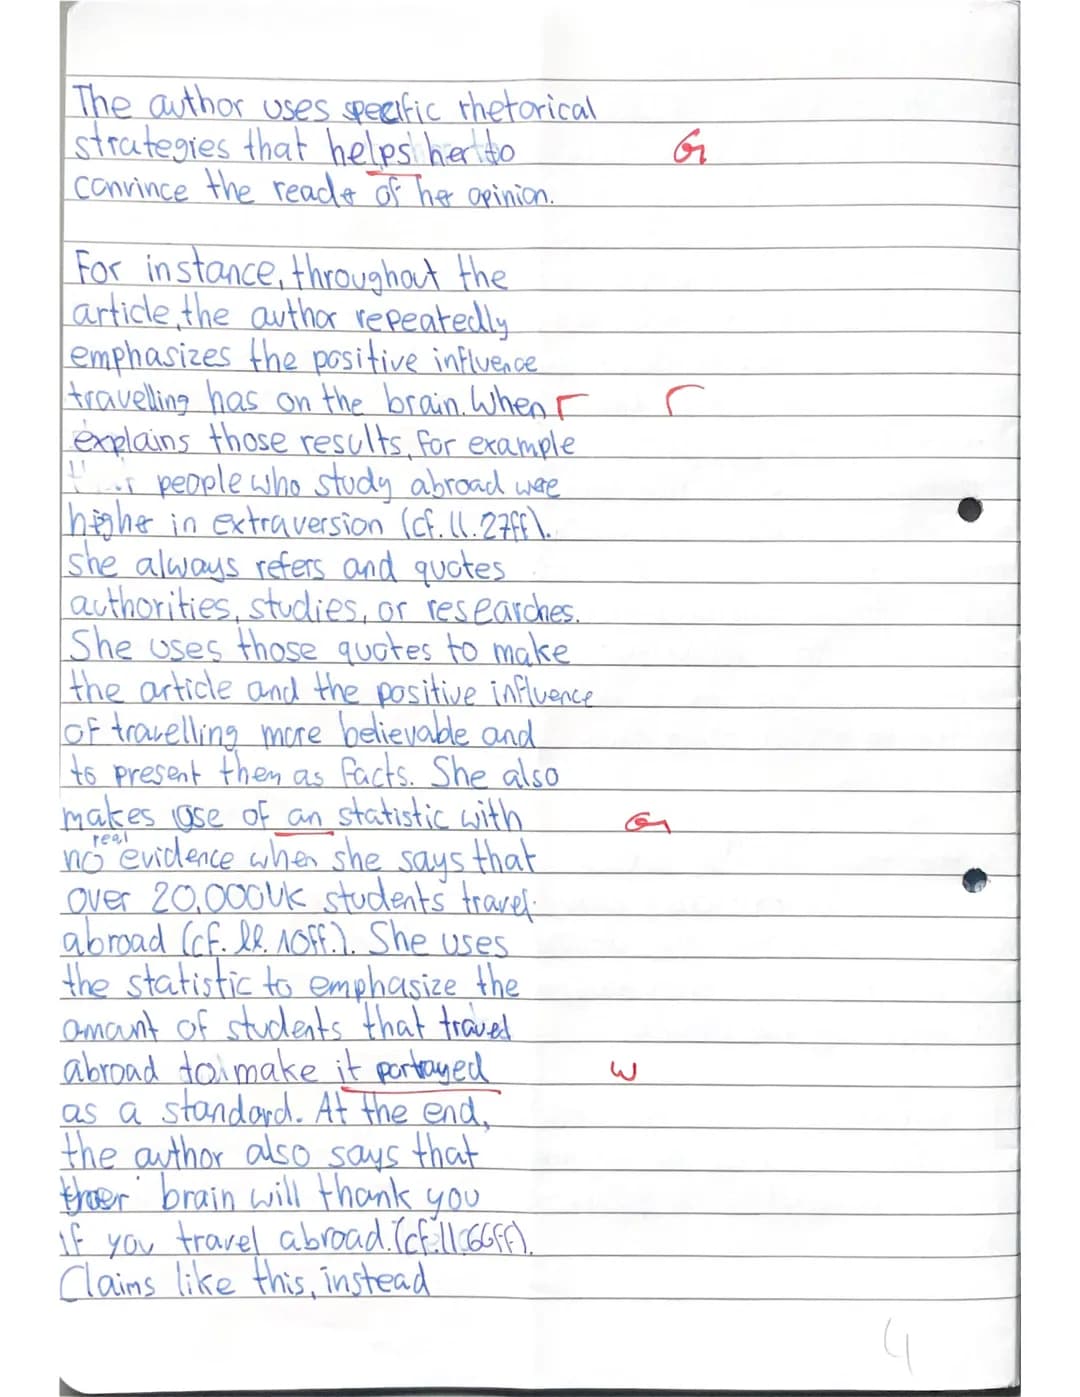 The author uses specific rhetorical
strategies that helps her to Gr
convince the reader of her opinion.
For instance, throughout the
article, the author repeatedly
emphasizes the positive influence
travelling has on the brain. When Γ Γ
explains those results, for example
people who study abroad were
higher in extraversion (cf. ll. 27ff).
she always refers and quotes
authorities, studies, or researches.
She uses those quotes to make
the article and the positive influence
of travelling more believable and
to present them as facts. She also
makes use of an statistic with Gr
real
no evidence when she says that
over 20.000 UK students travel
abroad (cf. ll. 10ff.). She uses
the statistic to emphasize the
amount of students that travel
abroad to make it portrayed W
as a standard. At the end,
the author also says that
brain will thank you
if you travel abroad. (cf. ll. 66ff).
Claims like this, instead
4